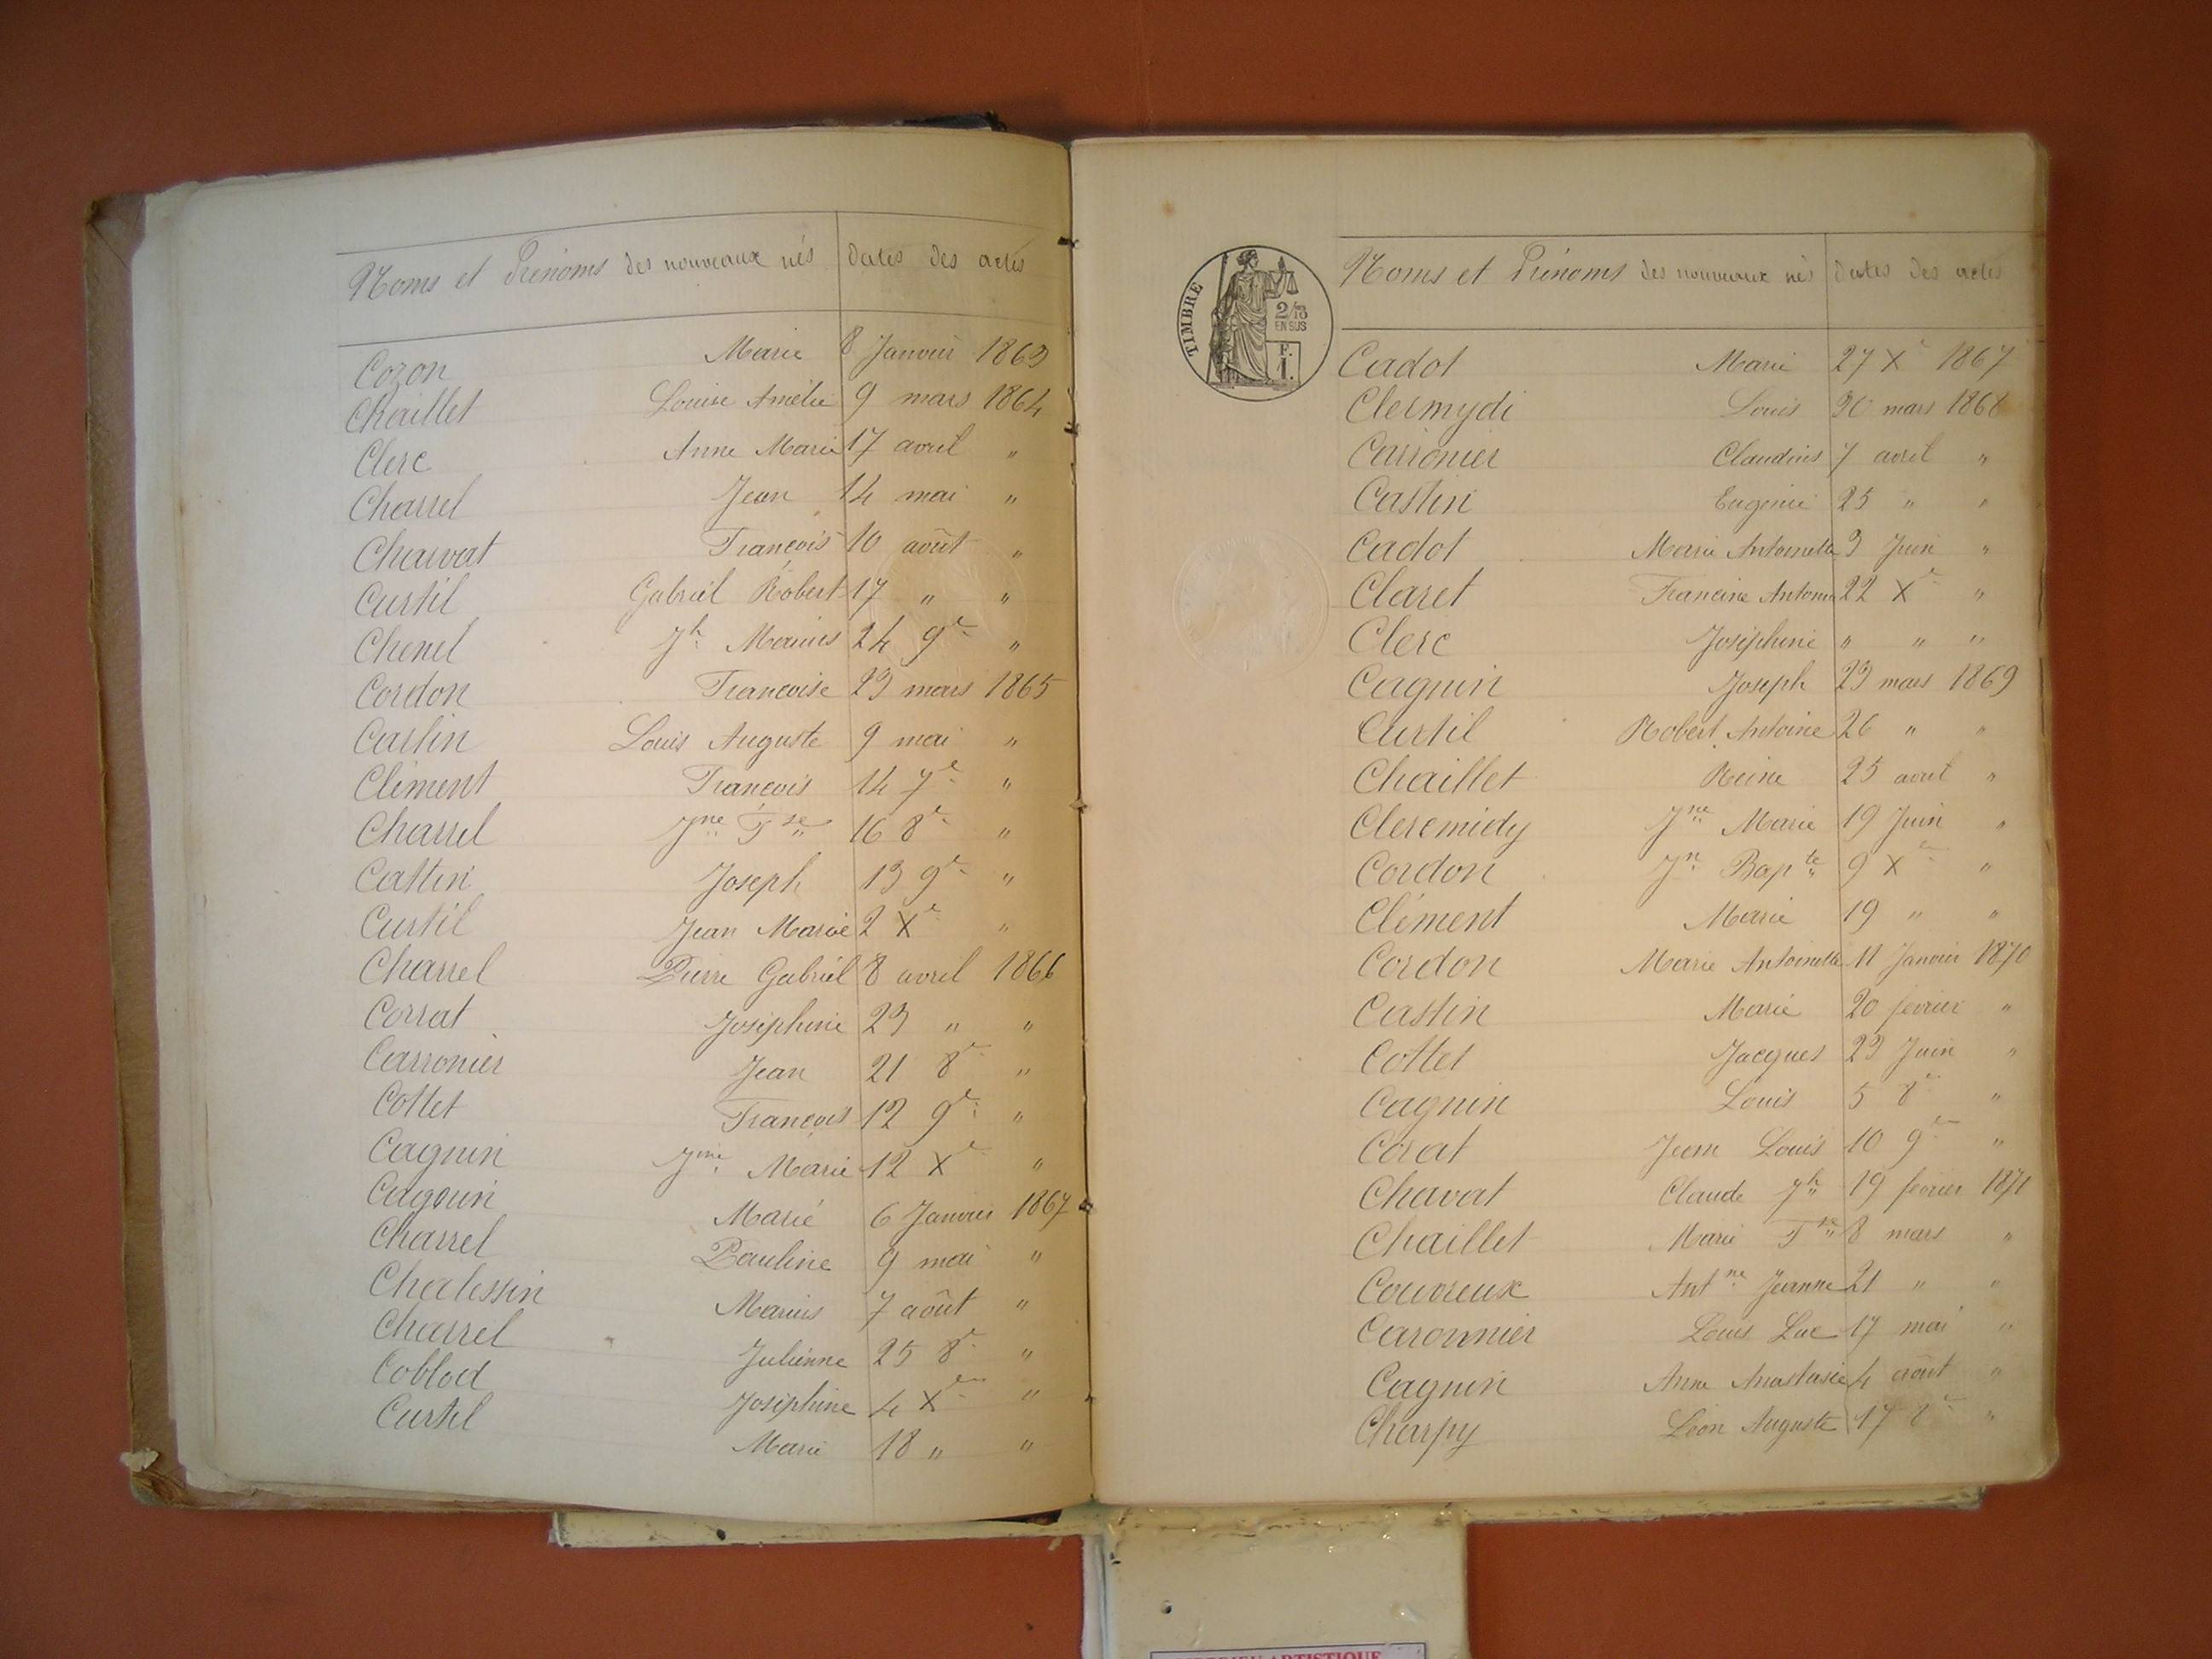 Noms et Prénoms des nouveaux nés dates des actes
Cozon Marie 8 Janvier 1863
Chaillet Louise Amélie 9 mars 1864
Clerc Anne Marie 17 avril "
Charrel Jean 14 mai "
Charvat François 10 août "
Curtil Gabriel Robert 17 " "
Chenel Jh Marius 24 9e "
Cordon Francoise 23 mars 1865
Castin Louis Auguste 9 mai "
Clément François 14 7e "
Charrel Jne Fse 16 8e "
Cattin Joseph 13 9e "
Curtil Jean Marie 2 Xe "
Charrel Pierre Gabriel 8 avril 1866
Corrat Joséphine 23 " "
Carronier Jean 21 8e "
Cottet François 12 9e "
Cagnin Jne Marie 12 Xe "
Cagnin Marie 6 Janvier 1867
Charrel Pauline 9 mai "
Chalessin Marius 7 août "
Charrel Julienne 25 8e "
Coblod Joséphine 4 Xe "
Curtil Marie 18 " "
TIMBRE
2/13
EN SUS
F.
1.
Noms et Prénoms des nouveaux nés dates des actes
Cadot Marie 27 Xe 1867
Clermydi Louis 30 mars 1868
Carronier Claudius 7 avril "
Castin Eugénie 25 " "
Cadot Marie Antoinette 3 Juin "
Claret Francine 22 Xe "
Clerc Joséphine " " "
Cagnin Joseph 23 mars 1869
Curtil Robert Antoine 26 " "
Chaillet Reine 25 avril "
Cleremidy Jne Marie 19 Juin "
Cordon Jn Bapte 9 Xe "
Clément Marie 19 " "
Cordon Marie Antoinette 11 Janvier 1870
Castin Marie 20 fevrier "
Cottet Jacques 23 Juin "
Cagnin Louis 5 8e "
Corat Jean Louis 10 9e "
Chavat Claude Jh 19 fevrier 1871
Chaillet Marie Fse 8 mars "
Couvreux Antne Jeanne 21 " "
Caronnier Louis Luc 17 mai "
Cagnin Anne Anastasie 4 août "
Charpy Léon Auguste 17 8e "
ARTISTIQUE